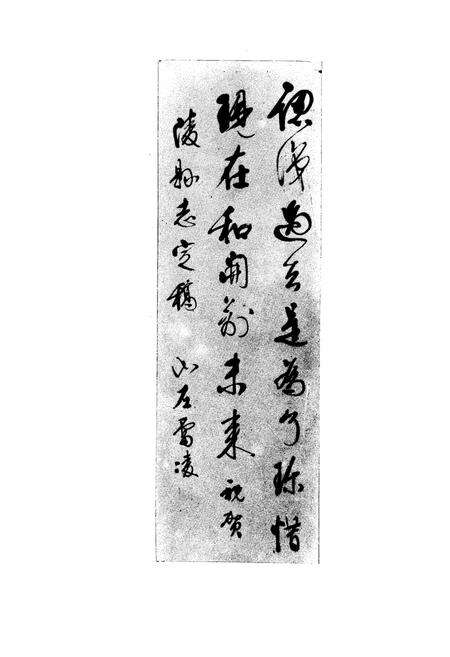 認識過去是為了珍惜
現在和開創未來 祝賀
陵縣志定稿 山左雷凌